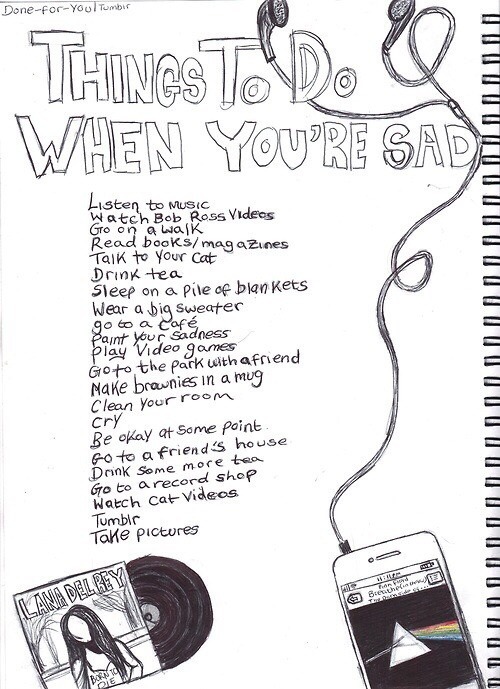 Done-for-You/Tumblr
THINGS TO DO
WHEN YOU'RE SAD
Listen to music
Watch Bob Ross Videos
Go on a walk
Read books/magazines
Talk to your cat
Drink tea
Sleep on a pile of blankets
Wear a big sweater
go to a café
Paint your sadness
Play Video games
Go to the park with a friend
Make brownies in a mug
Clean your room
Cry
Be okay at some point.
Go to a friend's house
Drink some more tea
Go to a record shop
Watch Cat Videos
Tumblr
Take pictures
LANA DEL REY
BORN TO
DIE
Pink Floyd